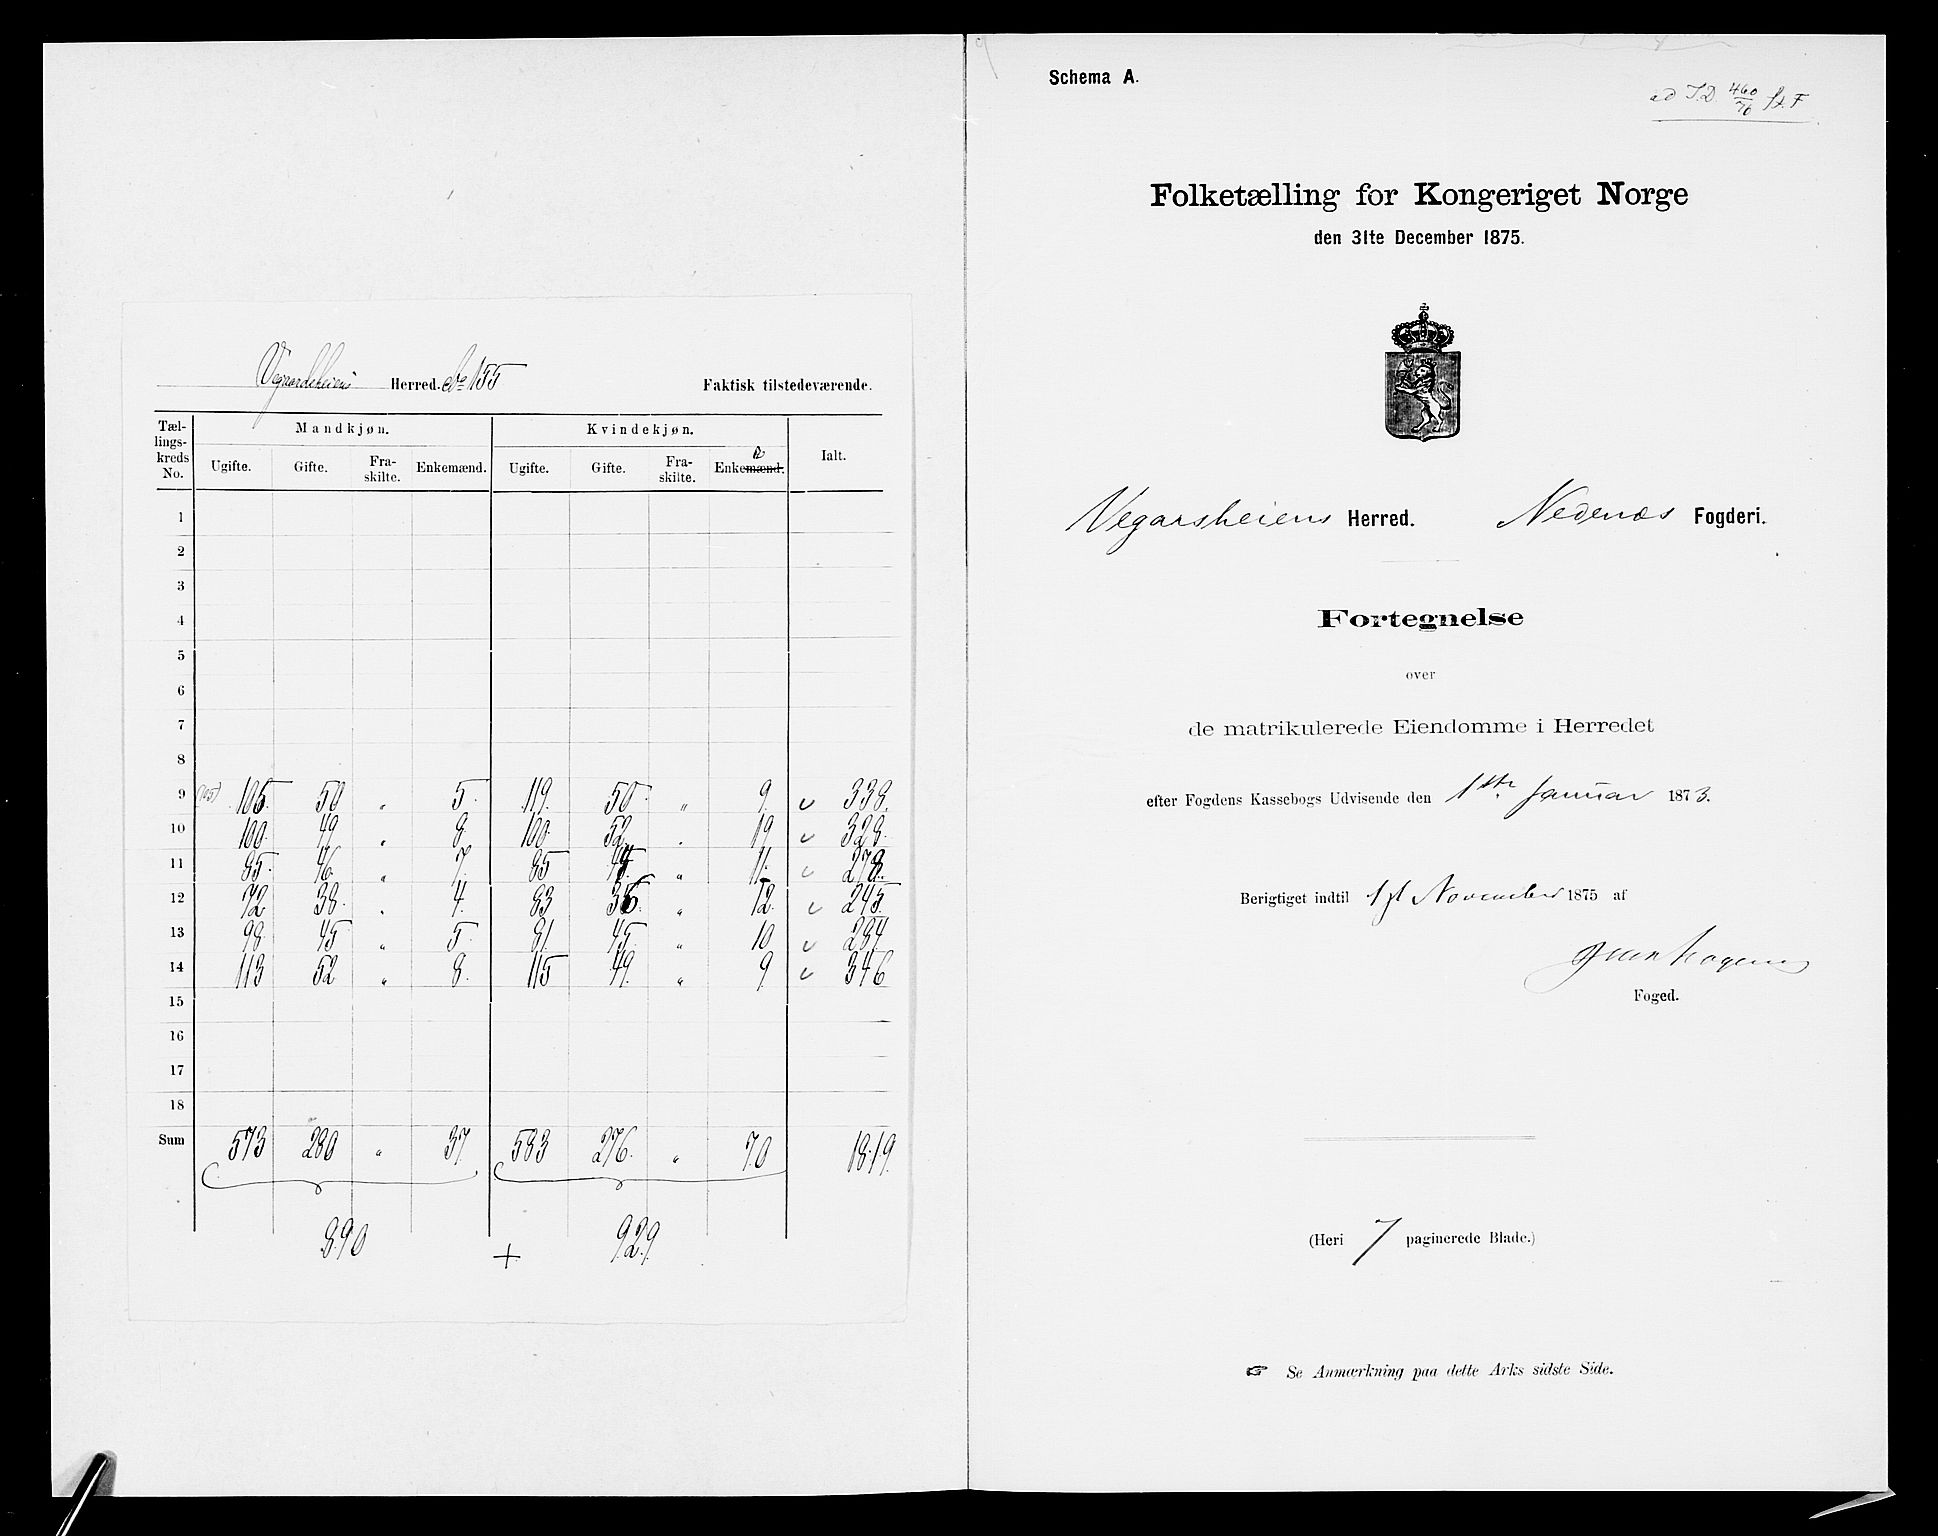 Vegaardsheiens Herred. No 155 Faktisk tilstedeværende.
Tæl-
lings-
kreds
No.
Mandkjøn. Kvindekjøn. Ialt.
Ugifte. Gifte. Fra-
skilte. Enkemænd. Ugifte. Gifte. Fra-
skilte. Enkemænd. r
1
2
3
4
5
6
7
8
9 (105) 105. 50 „ 5. 119. 50. „ 9. 338.
10 100. 49 „ 8 100. 52 „ 19 328.
11 85. 46. „ 7. 85 44 „ 11. 278.
12 72 38. „ 4. 83 36. „ 12. 245.
13 98. 45 „ 5. 81. 45. „ 10 284
14 113 52 „ 8. 115 49. „ 9. 346
15
16
17
18
Sum 573 280 „ 37. 583 276. „ 70 1819.
890 + 929.
Schema A.
ad J.D. 460/76 F
Folketælling for Kongeriget Norge
den 31te December 1875.
Vegarsheiens Herred. Nedenæs Fogderi.
Fortegnelse
over
de matrikulerede Eiendomme i Herredet
efter Fogdens Kassebogs Udvisende den 1ste Januar 1873.
Berigtiget indtil 1st November 1875 af
Foged.
(Heri 7 paginerede Blade.)
☞ Se Anmærkning paa dette Arks sidste Side.